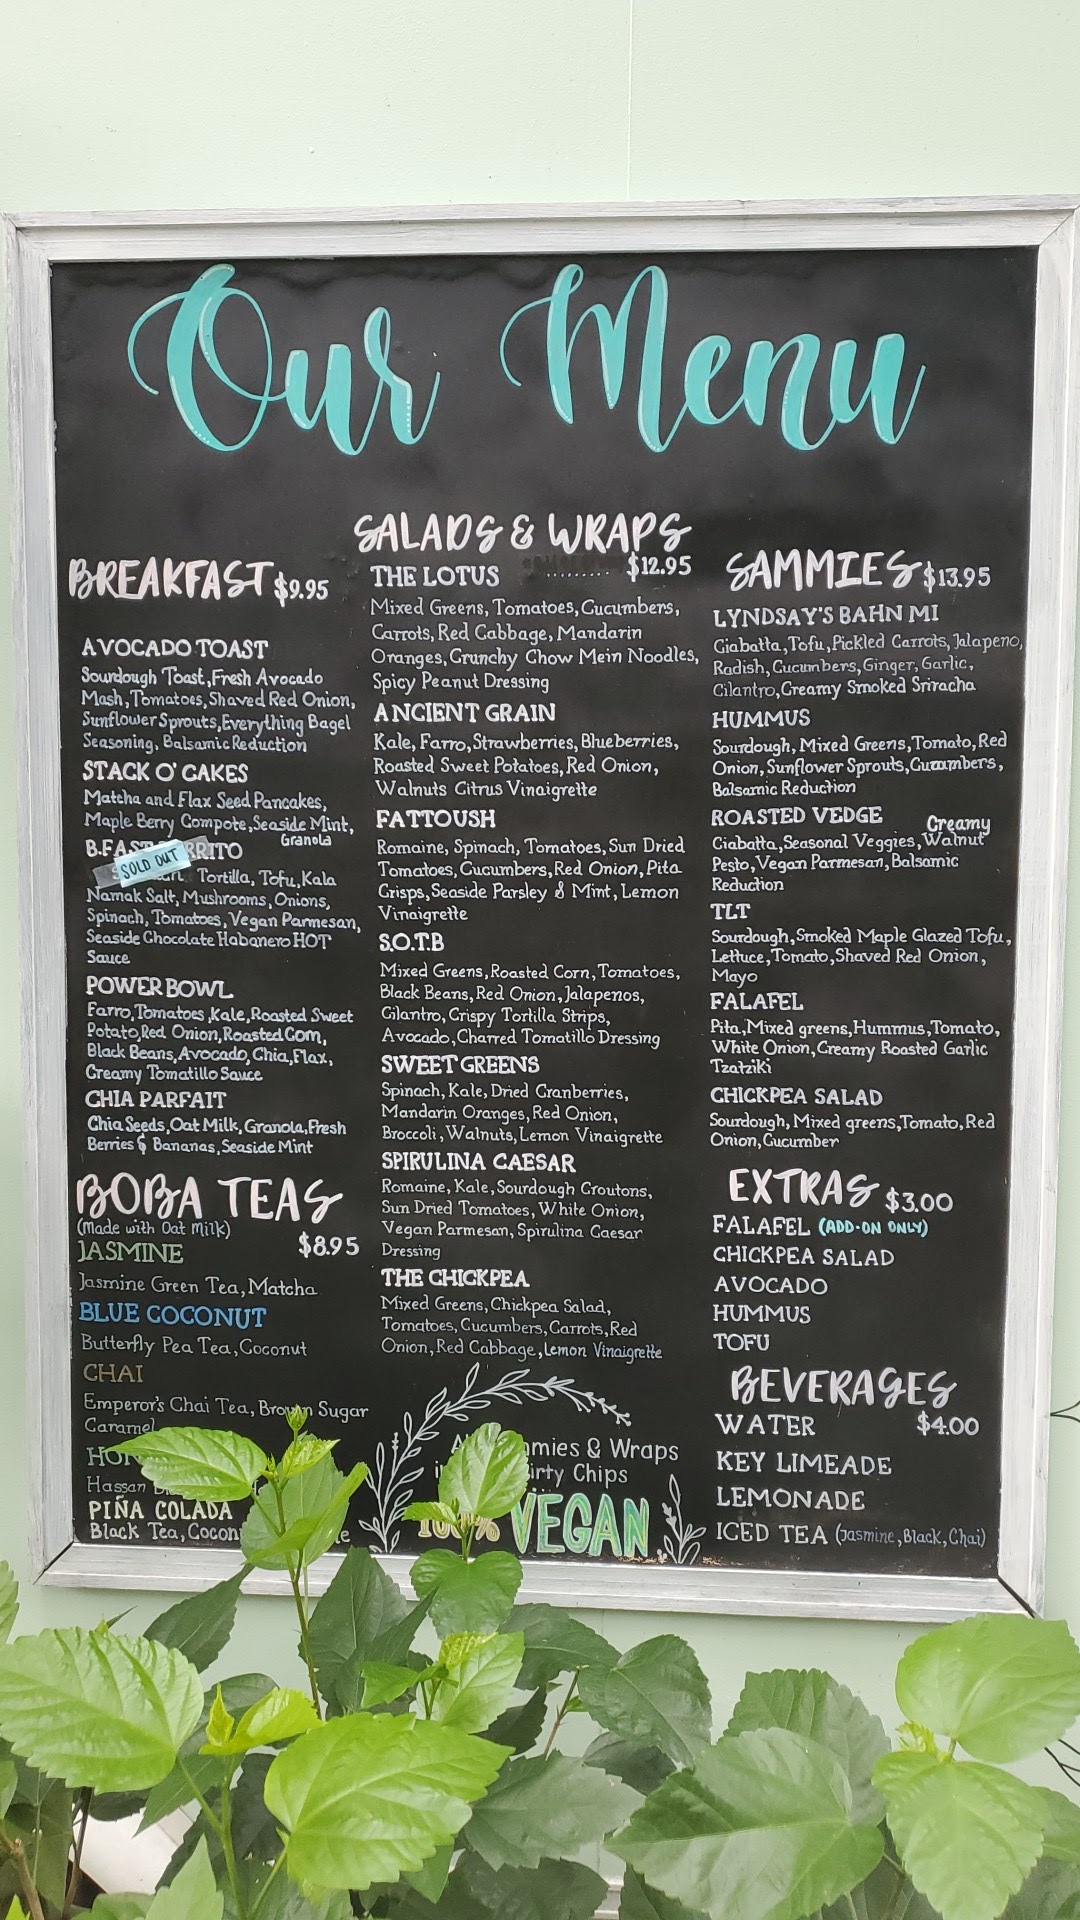 Our Menu
BREAKFAST $9.95
AVOCADO TOAST
Sourdough Toast, Fresh Avocado
Mash, Tomatoes, Shaved Red Onion,
Sunflower Sprouts, Everything Bagel
Seasoning, Balsamic Reduction
STACK O' CAKES
Matcha and Flax Seed Pancakes,
Maple Berry Compote, Seaside Mint,
Granola
SOLD OUT
Tortilla, Tofu, Kala
Namak Salt, Mushrooms, Onions,
Spinach, Tomatoes, Vegan Parmesan,
Seaside Chocolate Habanero HOT
Sauce
POWER BOWL
Farro, Tomatoes, Kale, Roasted Sweet
Potato, Red Onion, Roasted Corn,
Black Beans, Avocado, Chia, Flax,
Creamy Tomatillo Sauce
CHIA PARFAIT
Chia Seeds, Oat Milk, Granola, Fresh
Berries & Bananas, Seaside Mint
BOBA TEAS
(Made with Oat Milk)
JASMINE $8.95
Jasmine Green Tea, Matcha
BLUE COCONUT
Butterfly Pea Tea, Coconut
CHAI
Emperor's Chai Tea, Brown Sugar
Caramel
Hassan
PIÑA COLADA
Black Tea,
SALADS & WRAPS
THE LOTUS ......... $12.95
Mixed Greens, Tomatoes, Cucumbers,
Carrots, Red Cabbage, Mandarin
Oranges, Crunchy Chow Mein Noodles,
Spicy Peanut Dressing
ANCIENT GRAIN
Kale, Farro, Strawberries, Blueberries,
Roasted Sweet Potatoes, Red Onion,
Walnuts Citrus Vinaigrette
FATTOUSH
Romaine, Spinach, Tomatoes, Sun Dried
Tomatoes, Cucumbers, Red Onion, Pita
Crisps, Seaside Parsley & Mint, Lemon
Vinaigrette
S.O.T.B
Mixed Greens, Roasted Corn, Tomatoes,
Black Beans, Red Onion, Jalapenos,
Cilantro, Crispy Tortilla Strips,
Avocado, Charred Tomatillo Dressing
SWEET GREENS
Spinach, Kale, Dried Cranberries,
Mandarin Oranges, Red Onion,
Broccoli, Walnuts, Lemon Vinaigrette
SPIRULINA CAESAR
Romaine, Kale, Sourdough Croutons,
Sun Dried Tomatoes, White Onion,
Vegan Parmesan, Spirulina Caesar
Dressing
THE CHICKPEA
Mixed Greens, Chickpea Salad,
Tomatoes, Cucumbers, Carrots, Red
Onion, Red Cabbage, Lemon Vinaigrette
& Wraps
Chips
100% VEGAN
SAMMIES $13.95
LYNDSAY'S BAHN MI
Ciabatta, Tofu, Pickled Carrots, Jalapeno,
Radish, Cucumbers, Ginger, Garlic,
Cilantro, Creamy Smoked Sriracha
HUMMUS
Sourdough, Mixed Greens, Tomato, Red
Onion, Sunflower Sprouts, Cucumbers,
Balsamic Reduction
ROASTED VEDGE
Creamy
Ciabatta, Seasonal Veggies, Walnut
Pesto, Vegan Parmesan, Balsamic
Reduction
TLT
Sourdough, Smoked Maple Glazed Tofu,
Lettuce, Tomato, Shaved Red Onion,
Mayo
FALAFEL
Pita, Mixed greens, Hummus, Tomato,
White Onion, Creamy Roasted Garlic
Tzatziki
CHICKPEA SALAD
Sourdough, Mixed greens, Tomato, Red
Onion, Cucumber
EXTRAS $3.00
FALAFEL (ADD-ON ONLY)
CHICKPEA SALAD
AVOCADO
HUMMUS
TOFU
BEVERAGES
WATER $4.00
KEY LIMEADE
LEMONADE
ICED TEA (Jasmine, Black, Chai)